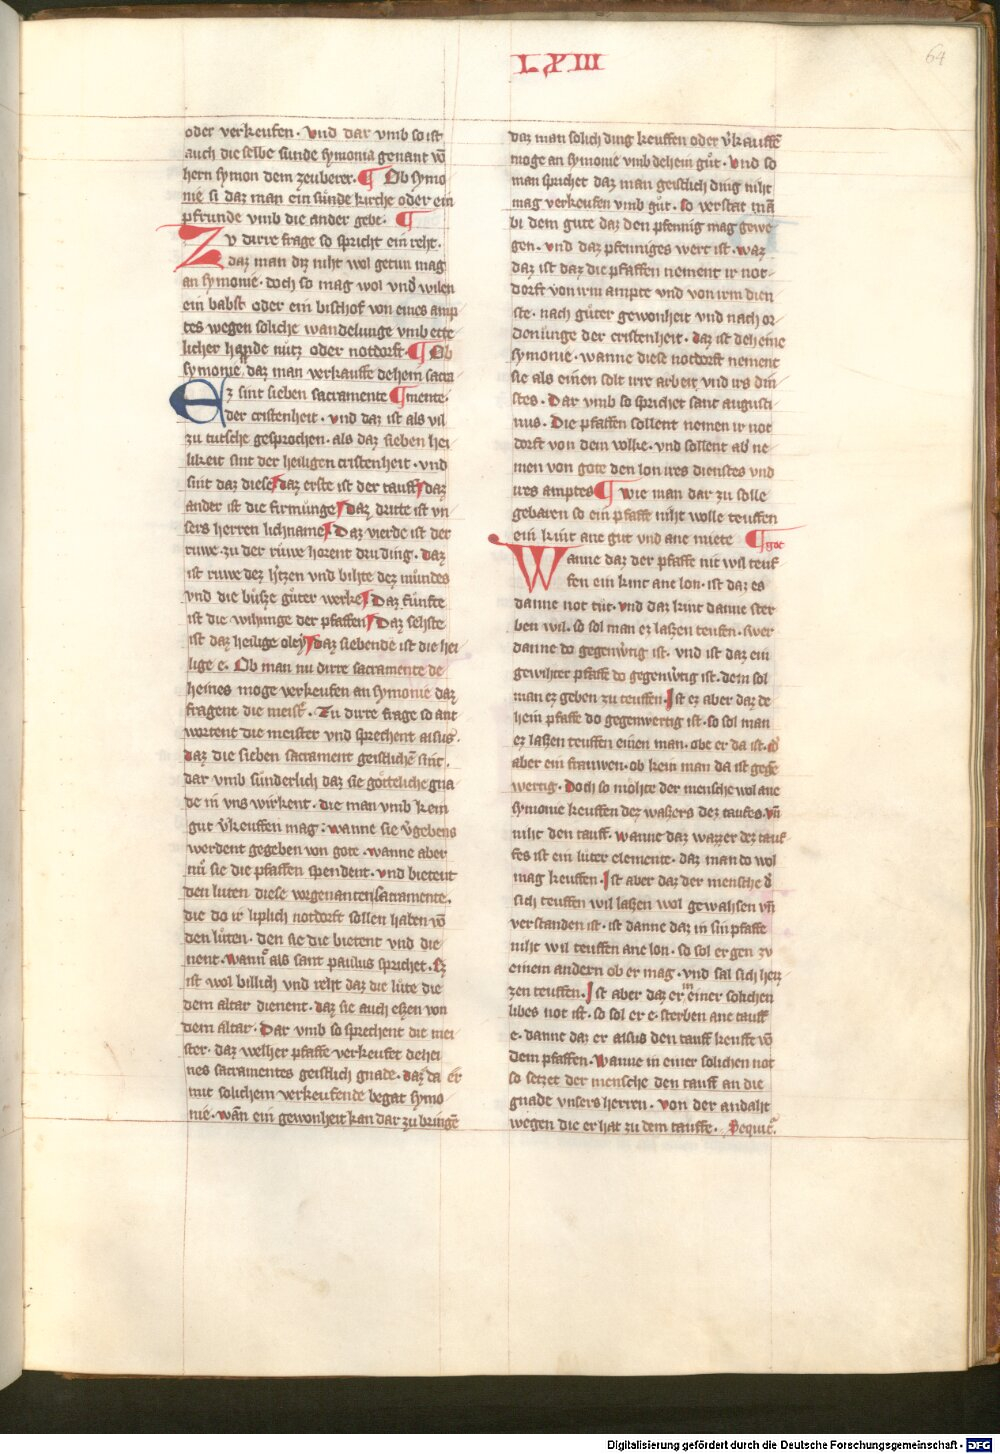 LXIII
64
oder verkeufen. Vnd dar vmb so ist
auch die selbe sunde symonia genant vō
hern symon dem zeuberer. ¶ Ob symo
nie si daz man ein sünde kirche oder ein
pfrunde vmb die ander gebe. ¶
Zv dirre frage so spricht ein reht.
daz man diz niht wol getun mag
an symonie. doch so mag wol vnd wilen
ein babst oder ein bischof von eines amp
tes wegen soliche wandelunge vmb ette
licher hande nütz oder notdorft. ¶ Ob
symonie daz man verkauffe dehein sacra
Ez sint sieben sacramente ¶ mente.
der cristenheit. vnd daz ist als vil
zu tutsche gesprochen. als daz sieben hei
likeit sint der heiligen cristenheit. vnd
sint daz diese. daz erste ist der tauff. daz
ander ist die firmünge. daz dritte ist vn
sers herren lichname. Daz vierde ist der
ruwe. zu der rüwe horent dru ding. daz
ist ruwe dez h'tzen vnd bihte dez mündes
vnd die büsze güter werke. Daz fünfte
ist die wihunge der pfaffen. Daz sehste
ist daz heilige oley. daz siebende ist die hei
lige e. Ob man nu dirre sacramente de
heines moge verkeufen an symonie daz
fragent die meist'. Zu dirre frage so ant
wortent die meister vnd sprechent alsus.
daz die sieben sacrament geistlichē sint.
dar vmb sünderlich daz sie götteliche gna
de in vns wirkent. die man vmb kein
gut v'keuffen mag. wanne sie v'gebens
werdent gegeben von gote. wanne aber
nu sie die pfaffen spendent. vnd bietent
den luten diese vorgenanten sacramente.
die do ir liplich notdorft sollen haben vō
den lüten. den sie die bietent vnd die
nent. wann als sant paulus sprichet. Ez
ist wol billich vnd reht daz die lüte die
dem altar dienent. daz sie auch eszen von
dem altar. Dar vmb so sprechent die mei
ster. daz welher pfaffe verkeufet dehei
nes sacramentes geistlich gnade. daz da er
mit solichem verkeufende begat symo
nie. wān ein gewonheit kan dar zu bringē
daz man solich ding keuffen oder v'kauffē
moge an symonie vmb dehein güt. Vnd so
man sprichet daz man geistlich ding niht
mag verkeufen vmb güt. so verstat mā
bi dem gute daz den pfennig mag gewe
gen. vnd daz pfenniges wert ist. waz
daz ist daz die pfaffen nement ir not
dorft von irm ampte vnd von irm dien
ste. nach güter gewonheit vnd nach or
denünge der cristenheit. daz ist deheine
symonie. wanne diese notdorft nement
sie als einen solt irre arbeit vnd irs din
stes. Dar vmb so sprichet sant augusti
nus. Die pfaffen sollent nemen ir not
dorft von dem volke. vnd sollent ab' ne
men von gote den lon ires dienstes vnd
ires amptes ¶ wie man dar zu solle
gebaren so ein pfaffe niht wolle teuffen
ein kint ane gut vnd ane miete ¶ got
Wanne daz der pfaffe nit wil teuf
fen ein kint ane lon. ist daz es
danne not tüt. vnd daz kint danne ster
ben wil. so sol man ez laszen teufen. swer
danne do gegenw'tig ist. vnd ist daz ein
gewihter pfaffe do gegenw'tig ist. dem sol
man ez geben zu teuffen. Ist ez aber daz de
hein pfaffe do gegenwertig ist. so sol man
ez laszen teuffen einen man. obe er da ist.
aber ein frauwen. ob kein man da ist gegē
wertig. Doch so möhte der mensche wol ane
symonie keuffen dez waszers dez taufes. vn̄
niht den tauff. wanne daz wazzer dez tauf
fes ist ein luter elemente. daz man do wol
mag keuffen. Ist aber daz der mensche d'
sich teuffen wil laszen wol gewahsen vn̄
verstanden ist. ist danne daz in sin pfaffe
niht wil teuffen ane lon. so sol er gen zv
einem andern ob er mag. vnd sal sich heiz
zen teuffen. Ist aber daz er in einer solichen
libes not ist. so sol er e sterben ane tauff
e. danne daz er alsus den tauff keuffe vō
dem pfaffen. wanne in einer solichen not
so setzet der mensche den tauff an die
gnade vnsers herren. von der andaht
wegen die er hat zu dem tauffe.
Digitalisierung gefördert durch die Deutsche Forschungsgemeinschaft - DFG